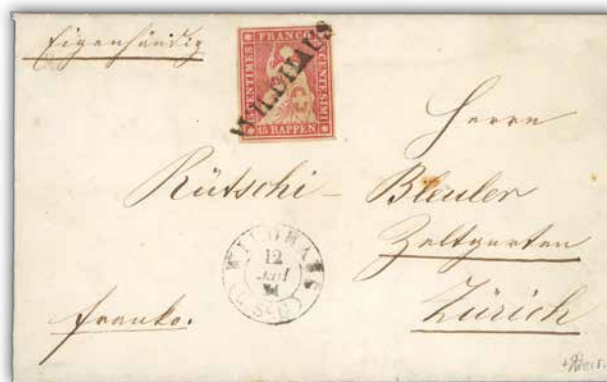 Eigenhändig
FRANCO
CENTIMES
CENTESIMI
15 RAPPEN
WILDHAUS
Herrn
Rütschi - Bleuler
Zeltgarten
Zürich
WILDHAUS
12
franko.